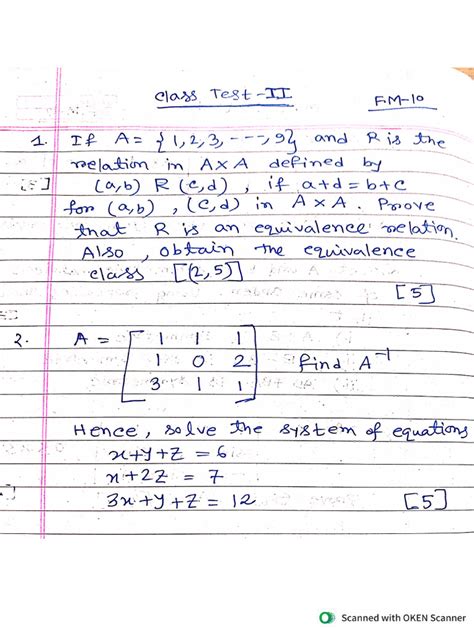 Class Test-II
F.M-10
1. If A = {1, 2, 3, ----, 9} and R is the
relation in A×A defined by
(a,b) R (c,d), if a+d = b+c
for (a,b), (c,d) in A×A. Prove
that R is an equivalence relation.
Also, obtain the equivalence
class [(2,5)]
[5]
2. A = [ 1 1 1
1 0 2
3 1 1 ] find A⁻¹
Hence, solve the system of equations
x+y+z = 6
x+2z = 7
3x+y+z = 12 [5]
Scanned with OKEN Scanner